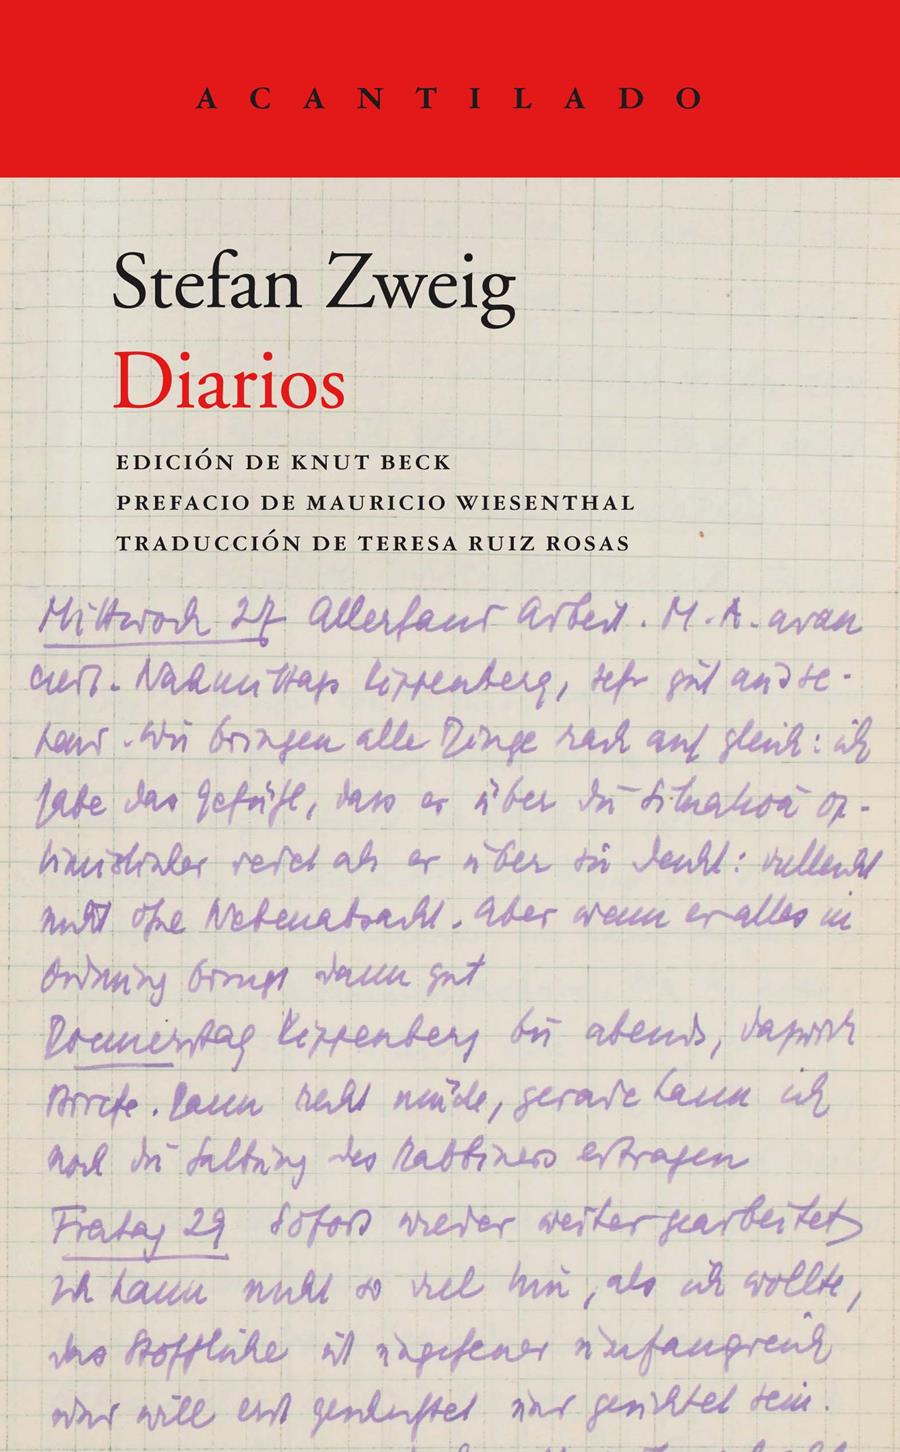 ACANTILADO
Stefan Zweig
Diarios
EDICIÓN DE KNUT BECK
PREFACIO DE MAURICIO WIESENTHAL
TRADUCCIÓN DE TERESA RUIZ ROSAS
Mittwoch 27 Allerhand Arbeit. M. A. avan
ciert. Nachmittags Kippenberg, sehr gut ausse-
hend. Wir bringen alle Dinge rasch auf gleich: ich
habe das Gefühl, dass er über die Situation op-
timistischer redet als er über sie denkt: vielleicht
nicht ohne Nebenabsicht. Aber wenn er alles in
Ordnung bringt dann gut
Donnerstag Kippenberg bis abends, dazwisch
Briefe. Dann recht müde, gerade kann ich
noch die des Rabbiners ertragen
Freitag 29 Sofort wieder weiter gearbeitet
Ich kann nicht so viel hin, als ich wollte,
das Stoffliche ist ungeheuer umfangreich
und will erst und gesichtet sein.